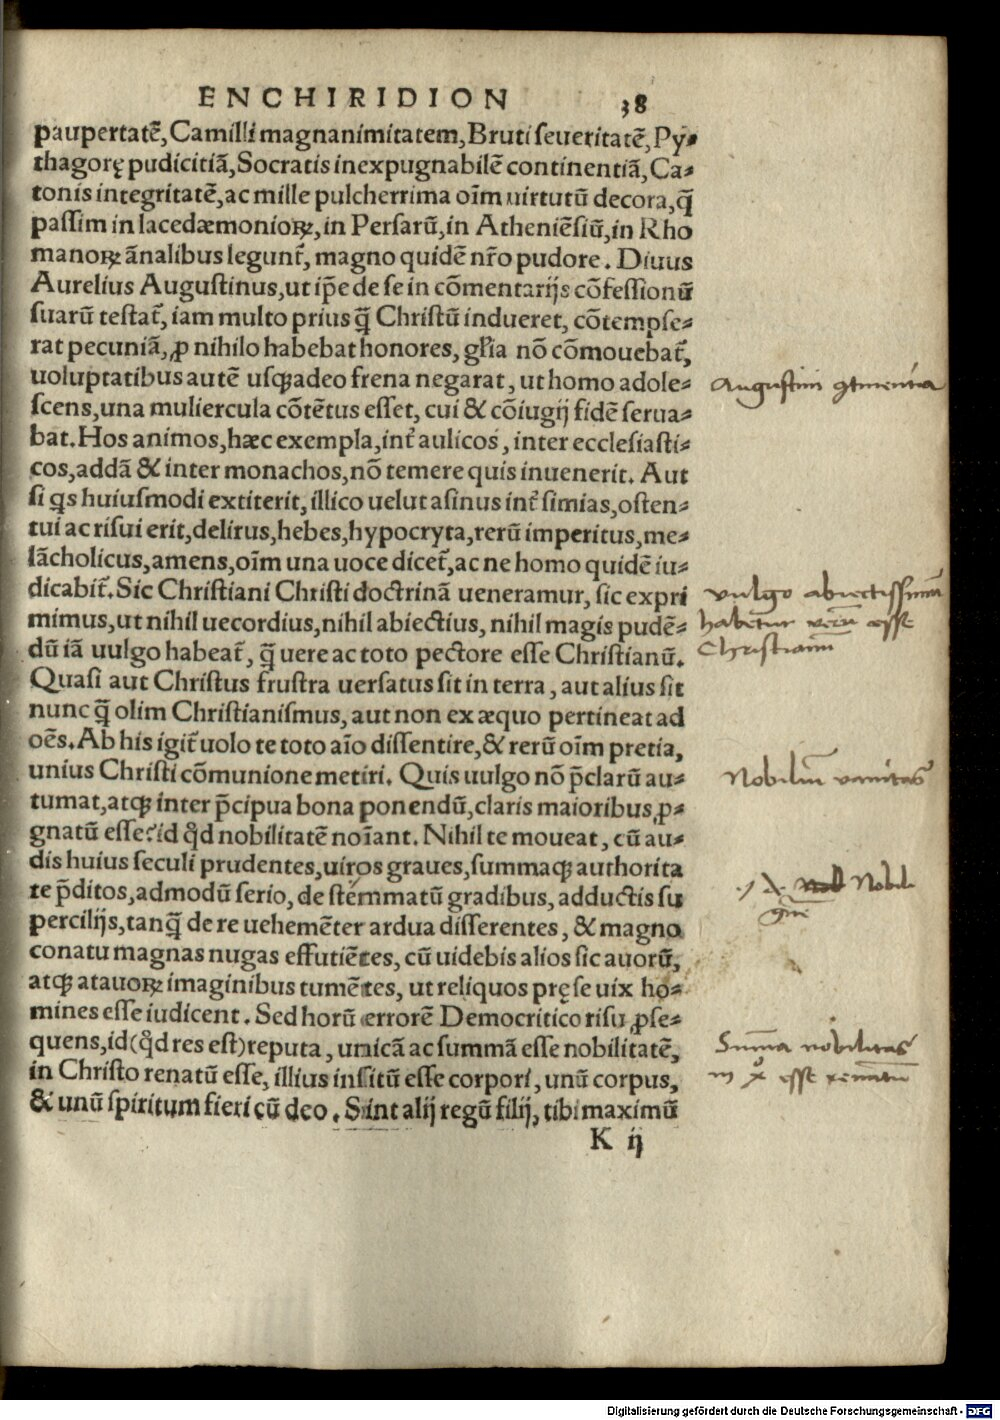 ENCHIRIDION 38
paupertatē, Camilli magnanimitatem, Bruti ſeueritatē, Py⸗
thagorę pudicitiā, Socratis inexpugnabilē continentiā, Ca⸗
tonis integritatē, ac mille pulcherrima oīm uirtutū decora, q̄
paſſim in lacedæmonioꝝ, in Perſarū, in Atheniēſiū, in Rho
manoꝝ ānalibus legunt᷑, magno quidē nr̄o pudore. Diuus
Aurelius Auguſtinus, ut ip̄e de ſe in cōmentarijs cōfeſſionū
ſuarū teſtat᷑, iam multo prius q̄ Chriſtū indueret, cōtempſe⸗
rat pecuniā, ꝓ nihilo habebat honores, gl̄ia nō cōmouebat᷑,
uoluptatibus autē uſqꝫadeo frena negarat, ut homo adole⸗
ſcens, una muliercula cōtētus eſſet, cui & cōiugij fidē ſerua⸗
bat. Hos animos, hæc exempla, int᷑ aulicos, inter eccleſiaſti⸗
cos, addā & inter monachos, nō temere quis inuenerit. Aut
ſi qs huiuſmodi extiterit, illico uelut aſinus int᷑ ſimias, oſten⸗
tui ac riſui erit, delirus, hebes, hypocryta, rerū imperitus, me⸗
lācholicus, amens, oīm una uoce dicet᷑, ac ne homo quidē iu⸗
dicabit᷑. Sic Chriſtiani Chriſti doctrinā ueneramur, ſic expri
mimus, ut nihil uecordius, nihil abiectius, nihil magis pudē⸗
dū iā uulgo habeat᷑, q̄ uere ac toto pectore eſſe Chriſtianū.
Quaſi aut Chriſtus fruſtra uerſatus ſit in terra, aut alius ſit
nunc q̄ olim Chriſtianiſmus, aut non ex æquo pertineat ad
oēs. Ab his igit᷑ uolo te toto aīo diſſentire, & rerū oīm pretia,
unius Chriſti cōmunione metiri. Quis uulgo nō p̄clarū au⸗
tumat, atqꝫ inter p̄cipua bona ponendū, claris maioribus, ꝓ⸗
gnatū eſſe? id qd̄ nobilitatē noīant. Nihil te moueat, cū au⸗
dis huius ſeculi prudentes, uiros graues, ſummaqꝫ authorita
te p̄ditos, admodū ſerio, de ſtemmatū gradibus, adductis ſu
percilijs, tanq̄ de re uehemēter ardua diſſerentes, & magno
conatu magnas nugas effutiētes, cū uidebis alios ſic auorū,
atqꝫ atauoꝝ imaginibus tumētes, ut reliquos prę ſe uix ho⸗
mines eſſe iudicent. Sed horū errorē Democritico riſu ꝓſe⸗
quens, id (qd̄ res eſt) reputa, unicā ac ſummā eſſe nobilitatē,
in Chriſto renatū eſſe, illius inſitū eſſe corpori, unū corpus,
& unū ſpiritum fieri cū deo. Sint alij regū filij, tibi maximū
K ij
Auguſtini ꝯtinentia
vulgo abiectiſſimū
habetur verū eſſe
Chriſtianū
Nobiliū vanitas
Nobili
Sum̄a nobilitas
in X° eſſe renatū
Digitalisierung gefördert durch die Deutsche Forschungsgemeinschaft - DFG